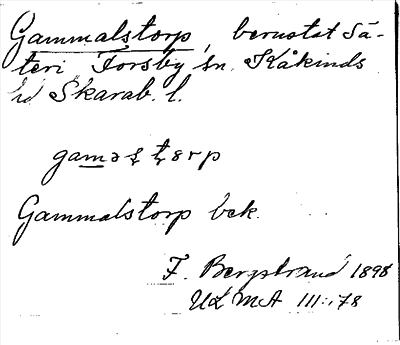 Gammalstorp, berustat Sä-
teri Forsby sn. Kåkinds
hd Skarab. l.
Gammalstorp bek.
F. Bergstrand 1898
ULMA 111:178